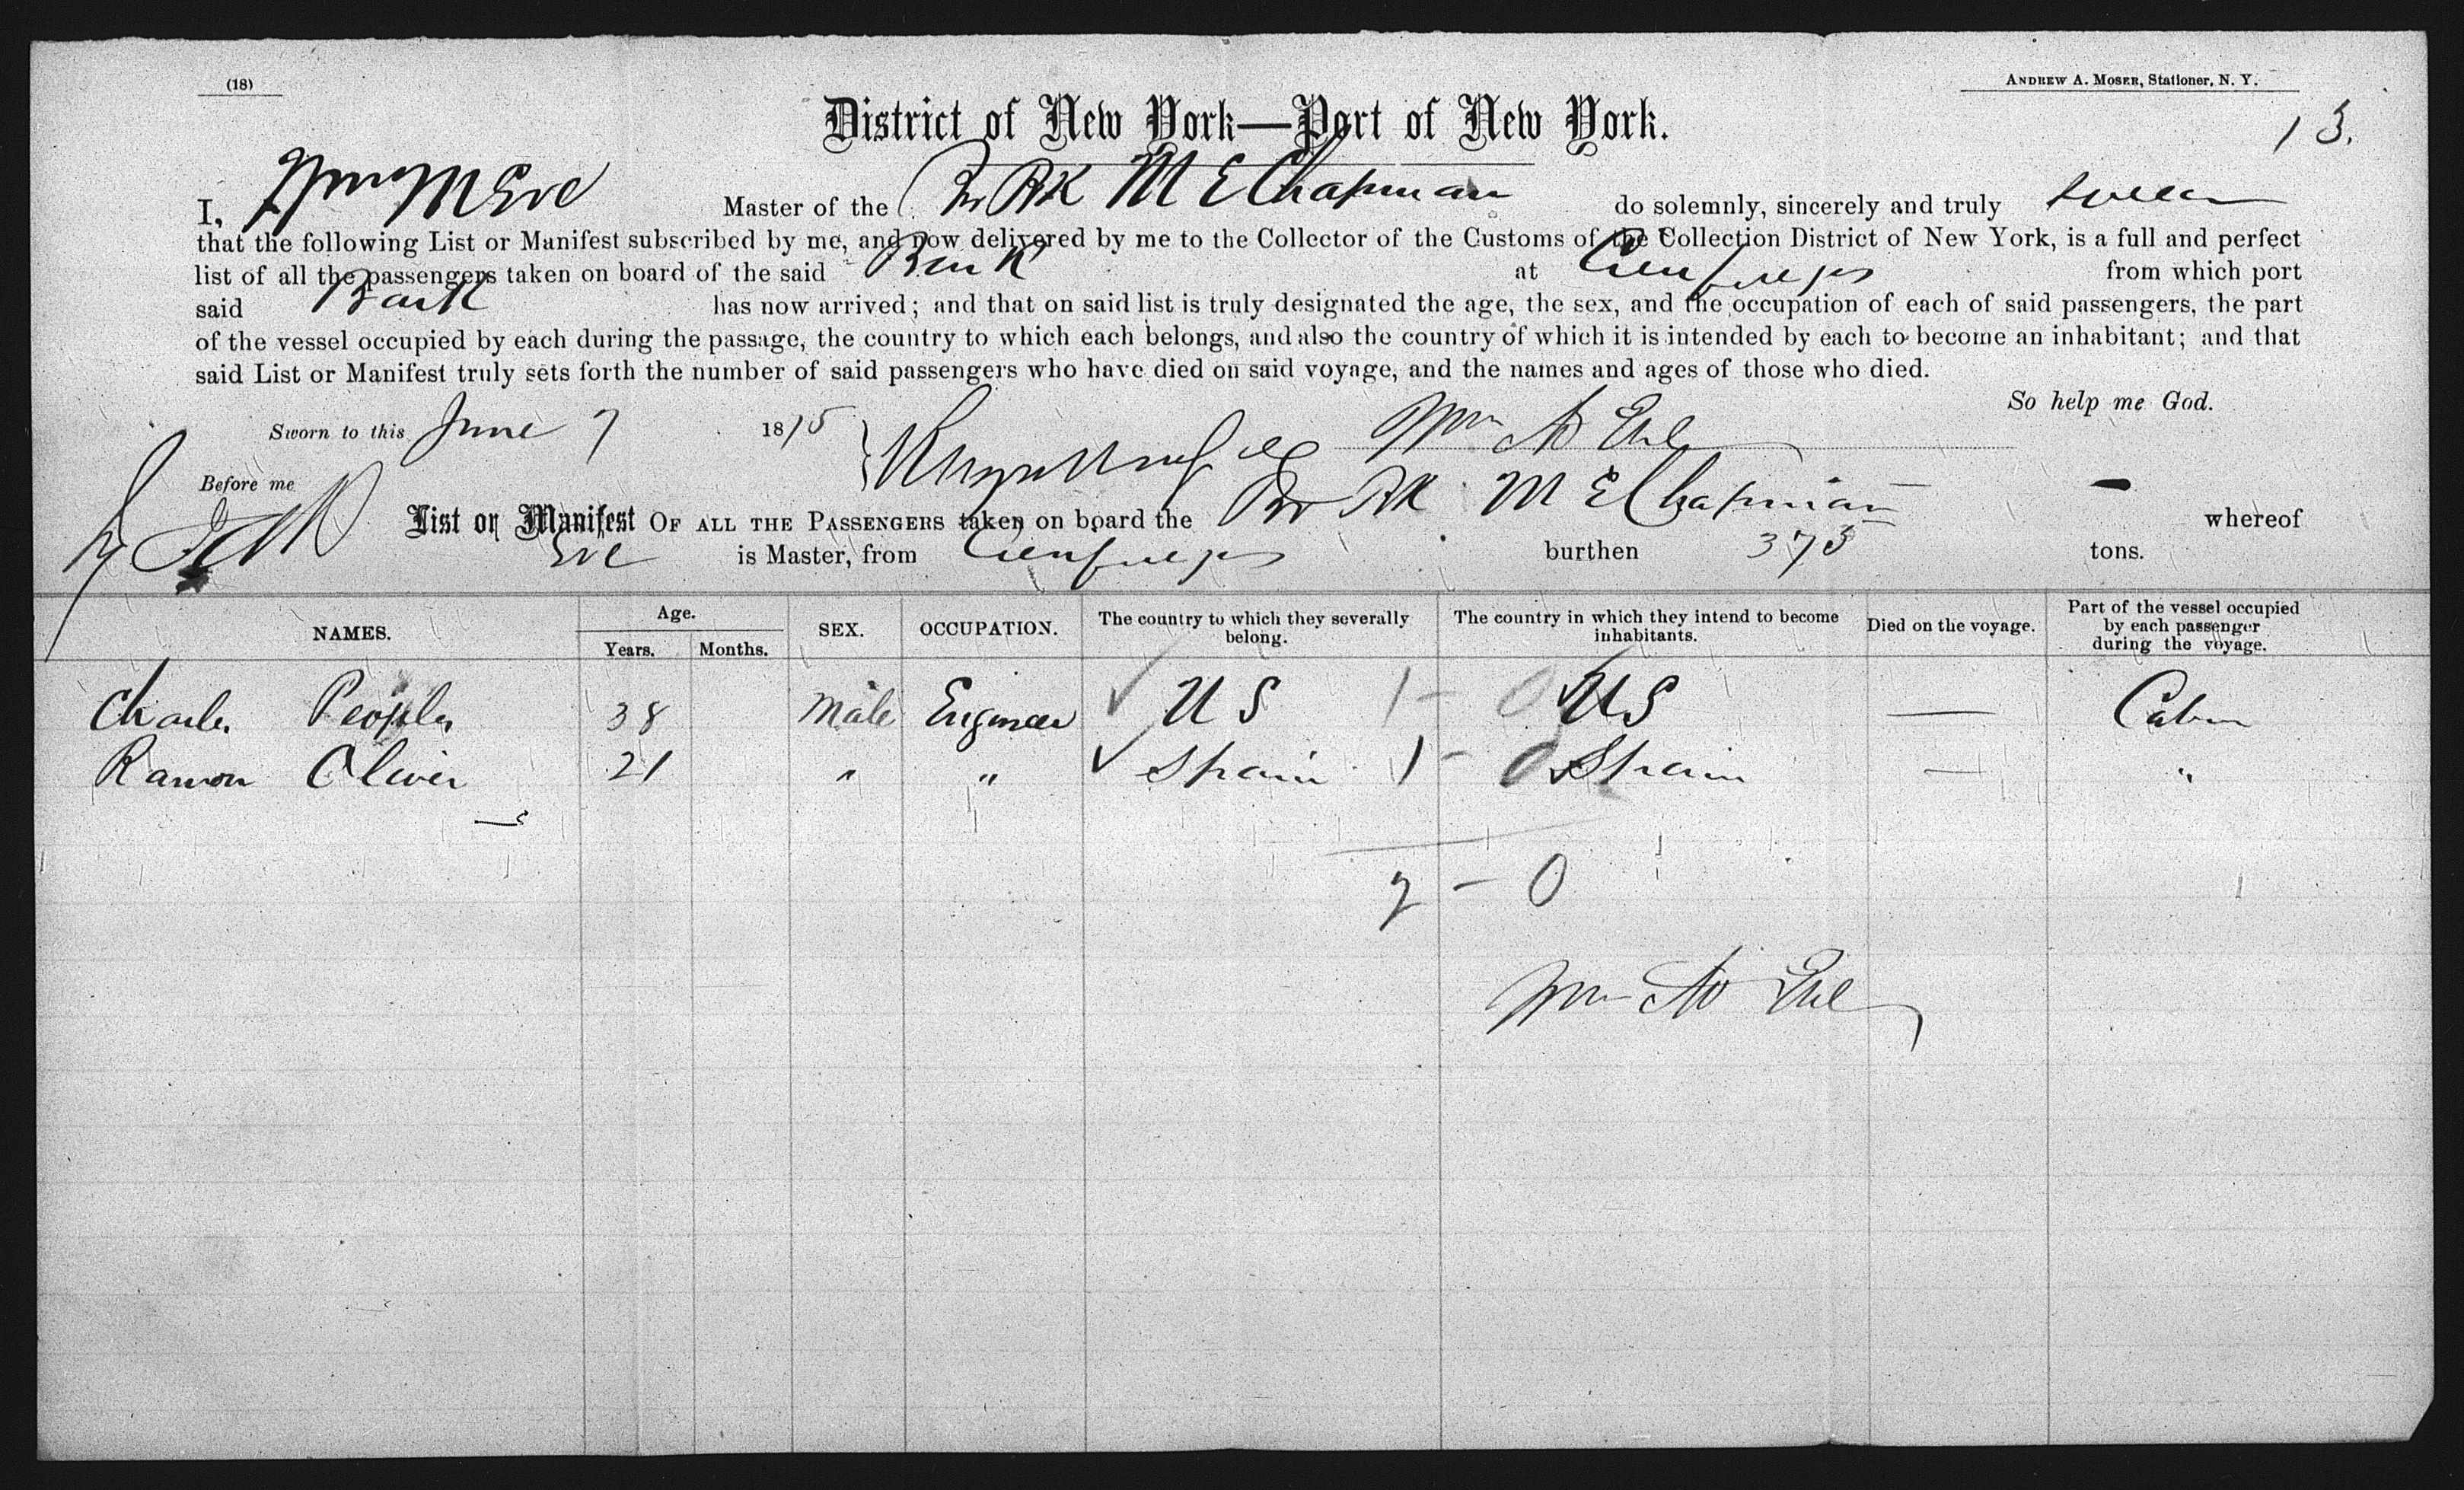 (18)
ANDREW A. MOSER, Stationer, N. Y.
13.
District of New York—Port of New York.
I, Wm M Eve Master of the Br Bk M E Chapman do solemnly, sincerely and truly swear
that the following List or Manifest subscribed by me, and now delivered by me to the Collector of the Customs of the Collection District of New York, is a full and perfect
list of all the passengers taken on board of the said Bark at Cienfuegos from which port
said Bark has now arrived; and that on said list is truly designated the age, the sex, and the occupation of each of said passengers, the part
of the vessel occupied by each during the passage, the country to which each belongs, and also the country of which it is intended by each to become an inhabitant; and that
said List or Manifest truly sets forth the number of said passengers who have died on said voyage, and the names and ages of those who died.
So help me God.
Sworn to this June 7 1875 Wm Eve
Before me
List or Manifest OF ALL THE PASSENGERS taken on board the Br Bk M E Chapman whereof
Eve is Master, from Cienfuegos burthen 373 tons.
NAMES. Age. Years. Months. SEX. OCCUPATION. The country to which they severally belong. The country in which they intend to become inhabitants. Died on the voyage. Part of the vessel occupied by each passenger during the voyage.
Charles Peoples 38 Male Engineer ✓ U S 1 - 0 ✓ U S — Cabin
Ramon Oliver 21 " " ✓ Spain 1 - 0 ✓ Spain — "
2 - 0
Wm Eve